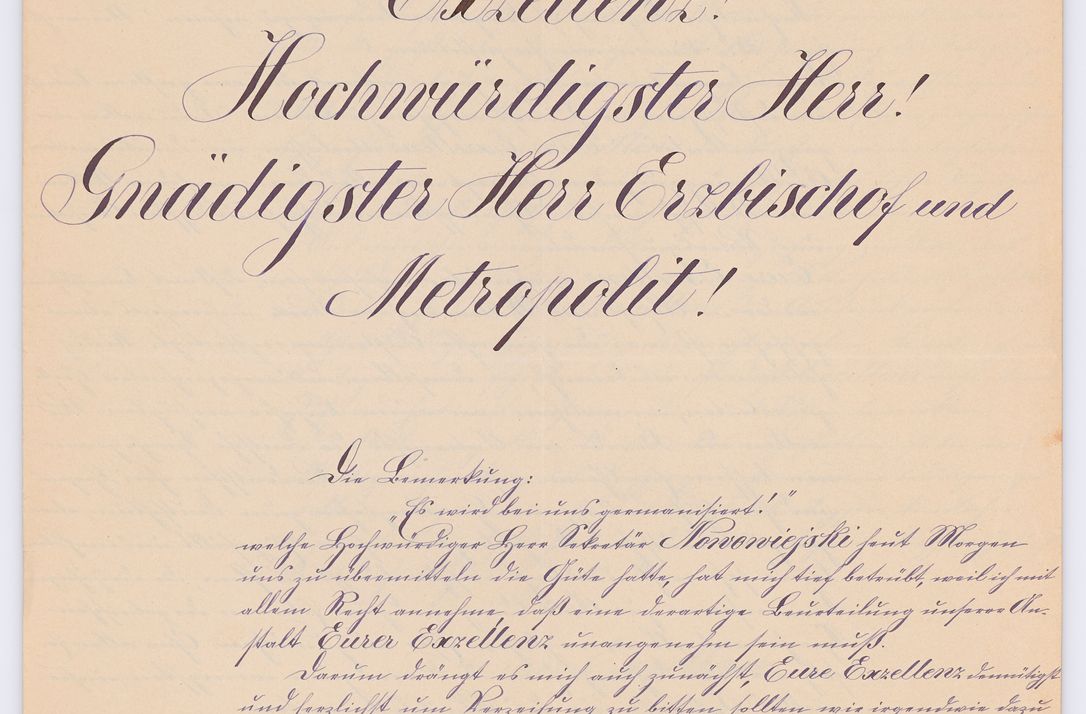 Exzellenz!
Hochwürdigster Herr!
Gnädigster Herr Erzbischof und
Metropolit!
Die Bemerkung:
„Es wird bei uns germanisiert!"
welche Hochwürdiger Herr Sekretär Nowowiejski heut Morgen
uns zu übermitteln die Güte hatte, hat mich tief betrübt, weil ich mit
allem Recht annehme, daß eine derartige Beurteilung unserer An-
stalt Eurer Exzellenz unangenehm sein muß.
Darum drängt es mich auch zunächst, Eure Exzellenz demütigst
und herzlichst um Verzeihung zu bitten sollten wir irgendwie dazu